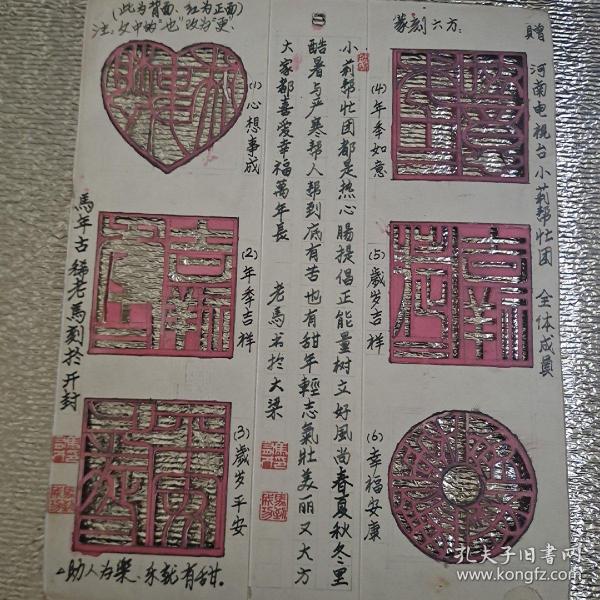 赠 河南电视台小莉帮忙团 全体成员
篆刻六方:
(4)年年如意
(5)歲岁吉祥
(6)幸福安康
小莉帮忙团都是热心腸提倡正能量树立好風尚春夏秋冬里
酷暑与严寒帮人帮到底有苦也有甜年輕志氣壮美丽又大方
大家都喜爱幸福萬年長 老馬书於大梁
(1)心想事成
(2)年年吉祥
(3)歲岁平安
(此为背面、红为正面)
注:文中的"也"改为"更"
馬年古稀老馬刻於开封
助人为樂、乐就有甜.
孔夫子旧书网
www.kongfz.com